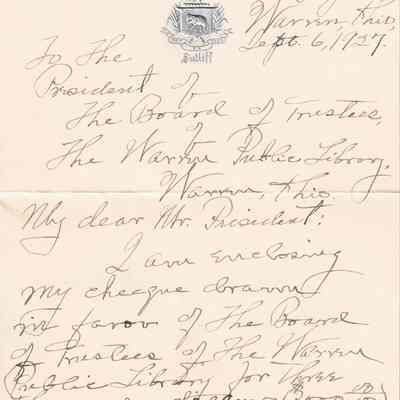 Sutliff
Warren, Ohio,
Sept. 6, 1927.
To The
President of
The Board of Trustees,
of
The Warren Public Library,
Warren, Ohio.
My dear Mr. President:
I am enclosing
my cheque drawn
in favor of The Board
of Trustees of The Warren
Public Library for three